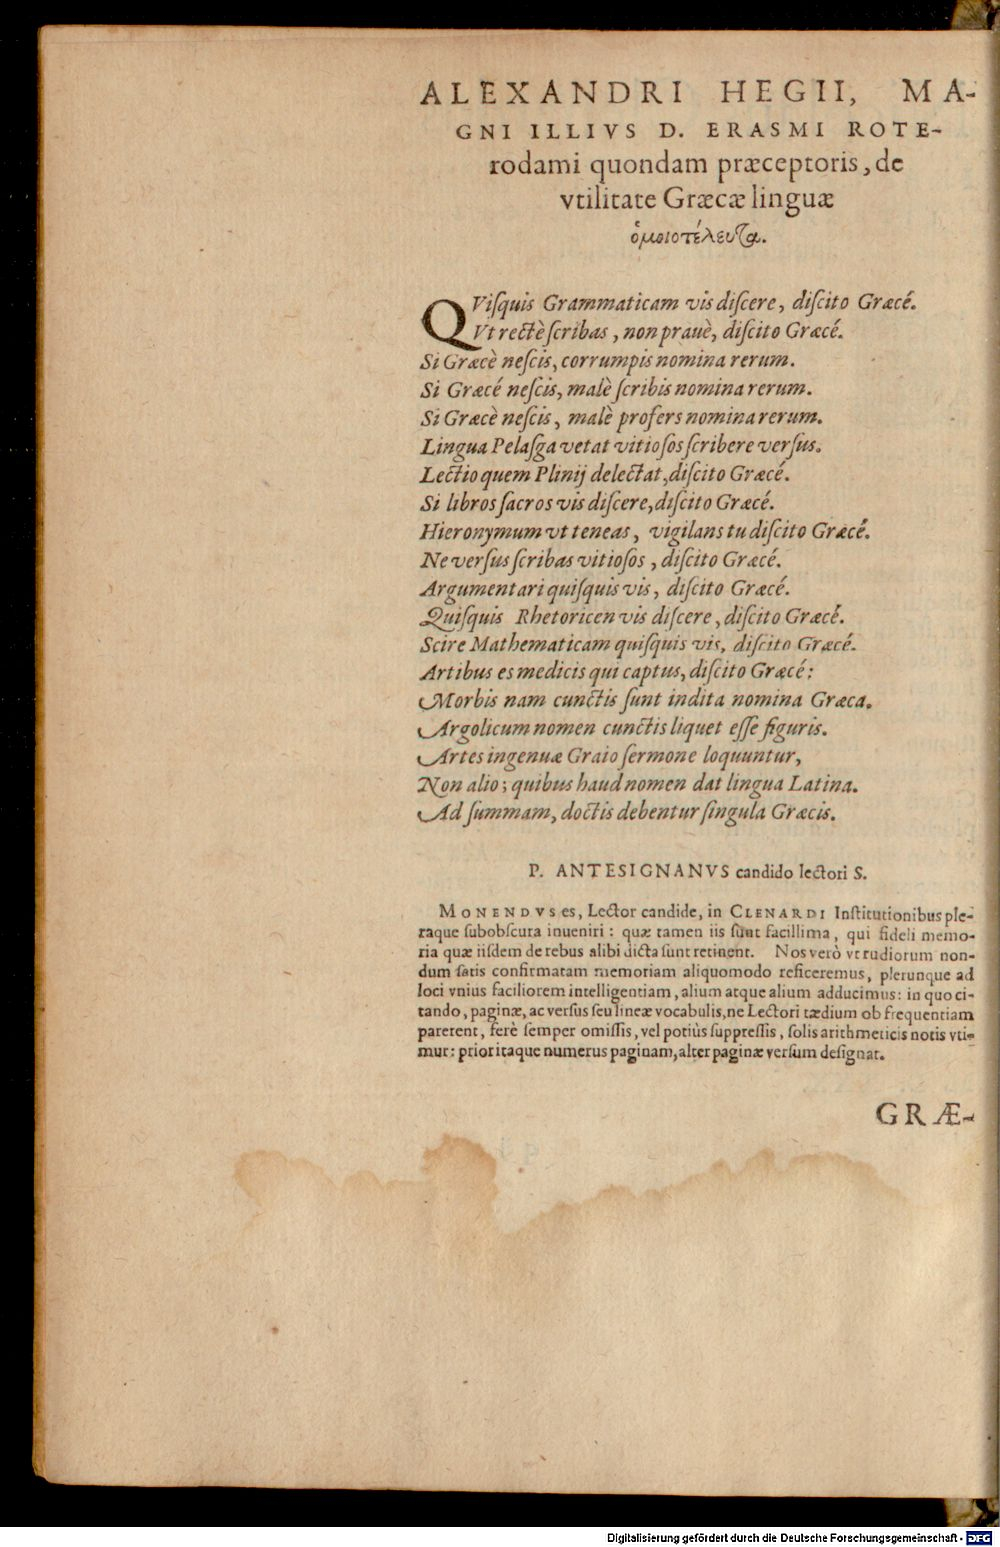 ALEXANDRI HEGII, MA-
GNI ILLIVS D. ERASMI ROTE-
rodami quondam præceptoris, de
vtilitate Græcæ linguæ
ὁμοιοτέλευτα.
QViſquis Grammaticam vis diſcere, diſcito Græcé.
Vt rectè ſcribas, non prauè, diſcito Græcé.
Si Græcè neſcis, corrumpis nomina rerum.
Si Græcé neſcis, malè ſcribis nomina rerum.
Si Græcè neſcis, malè profers nomina rerum.
Lingua Pelaſga vetat vitioſos ſcribere verſus.
Lectio quem Plinij delectat, diſcito Græcé.
Si libros ſacros vis diſcere, diſcito Græcé.
Hieronymum vt teneas, vigilans tu diſcito Græcé.
Ne verſus ſcribas vitioſos, diſcito Græcé.
Argumentari quiſquis vis, diſcito Græcé.
Quiſquis Rhetoricen vis diſcere, diſcito Græcé.
Scire Mathematicam quiſquis vis, diſcito Græcé.
Artibus es medicis qui captus, diſcito Græcé:
Morbis nam cunctis ſunt indita nomina Græca.
Argolicum nomen cunctis liquet eſſe figuris.
Artes ingenuæ Graio ſermone loquuntur,
Non alio; quibus haud nomen dat lingua Latina.
Ad ſummam, doctis debentur ſingula Græcis.
P. ANTESIGNANVS candido lectori S.
MONENDVS es, Lector candide, in CLENARDI Inſtitutionibus ple-
raque ſubobſcura inueniri: quæ tamen iis ſunt facillima, qui fideli memo-
ria quæ iiſdem de rebus alibi dicta ſunt retinent. Nos verò vt rudiorum non-
dum ſatis confirmatam memoriam aliquomodo reficeremus, plerunque ad
loci vnius faciliorem intelligentiam, alium atque alium adducimus: in quo ci-
tando, paginæ, ac verſus ſeu lineæ vocabulis, ne Lectori tædium ob frequentiam
parerent, ferè ſemper omiſſis, vel potiùs ſuppreſſis, ſolis arithmeticis notis vti-
mur: prior itaque numerus paginam, alter paginæ verſum deſignat.
GRÆ-
Digitalisierung gefördert durch die Deutsche Forschungsgemeinschaft - DFG